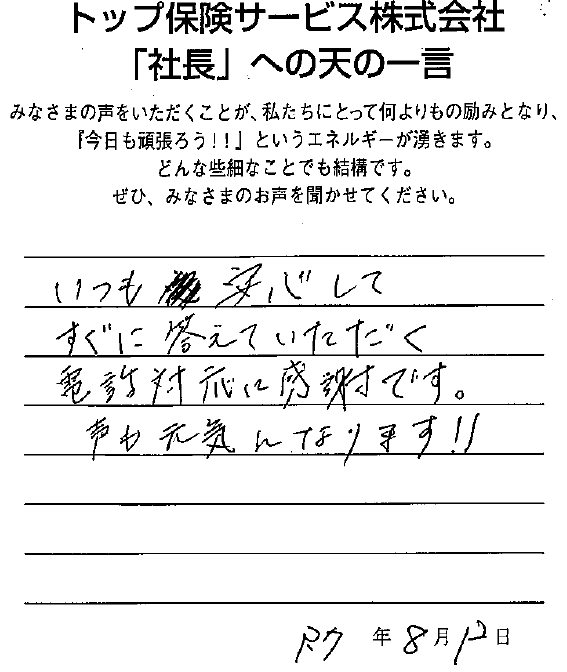 トップ保険サービス株式会社
「社長」への天の一言
みなさまの声をいただくことが、私たちにとって何よりもの励みとなり、
『今日も頑張ろう!!』というエネルギーが湧きます。
どんな些細なことでも結構です。
ぜひ、みなさまのお声を聞かせてください。
いつも 安心して
すぐに答えていただく
電話対応に感謝です。
声も元気になります!!
年8月12日